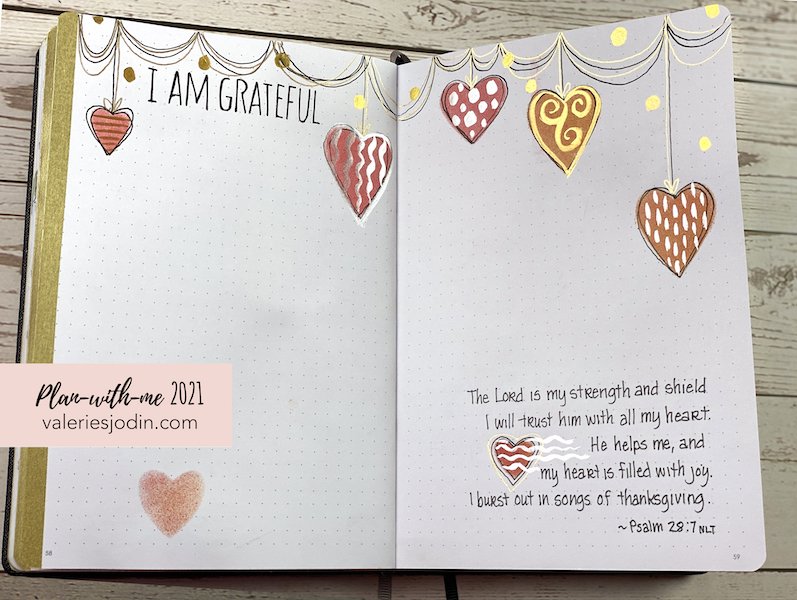 I AM GRATEFUL
Plan-with-me 2021
valeriesjodin.com
The Lord is my strength and shield
I will trust him with all my heart.
He helps me, and
my heart is filled with joy.
I burst out in songs of thanksgiving.
~ Psalm 28:7 NLT
58
59